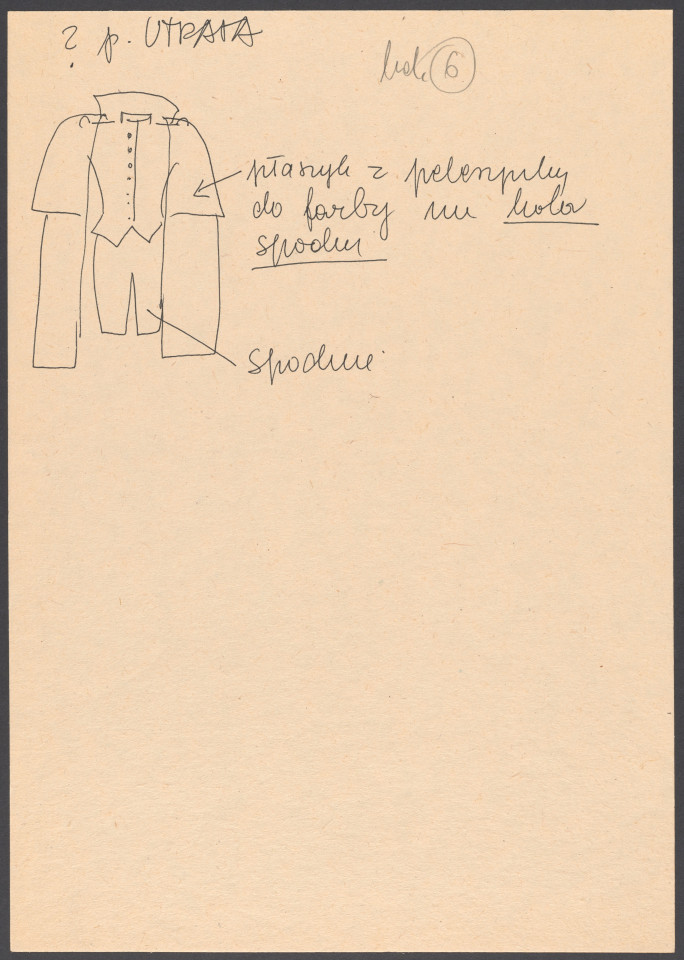 ? p. UTRATA
6
płaszyk z peleszynky
do farby na kolor
spodni
spodnie